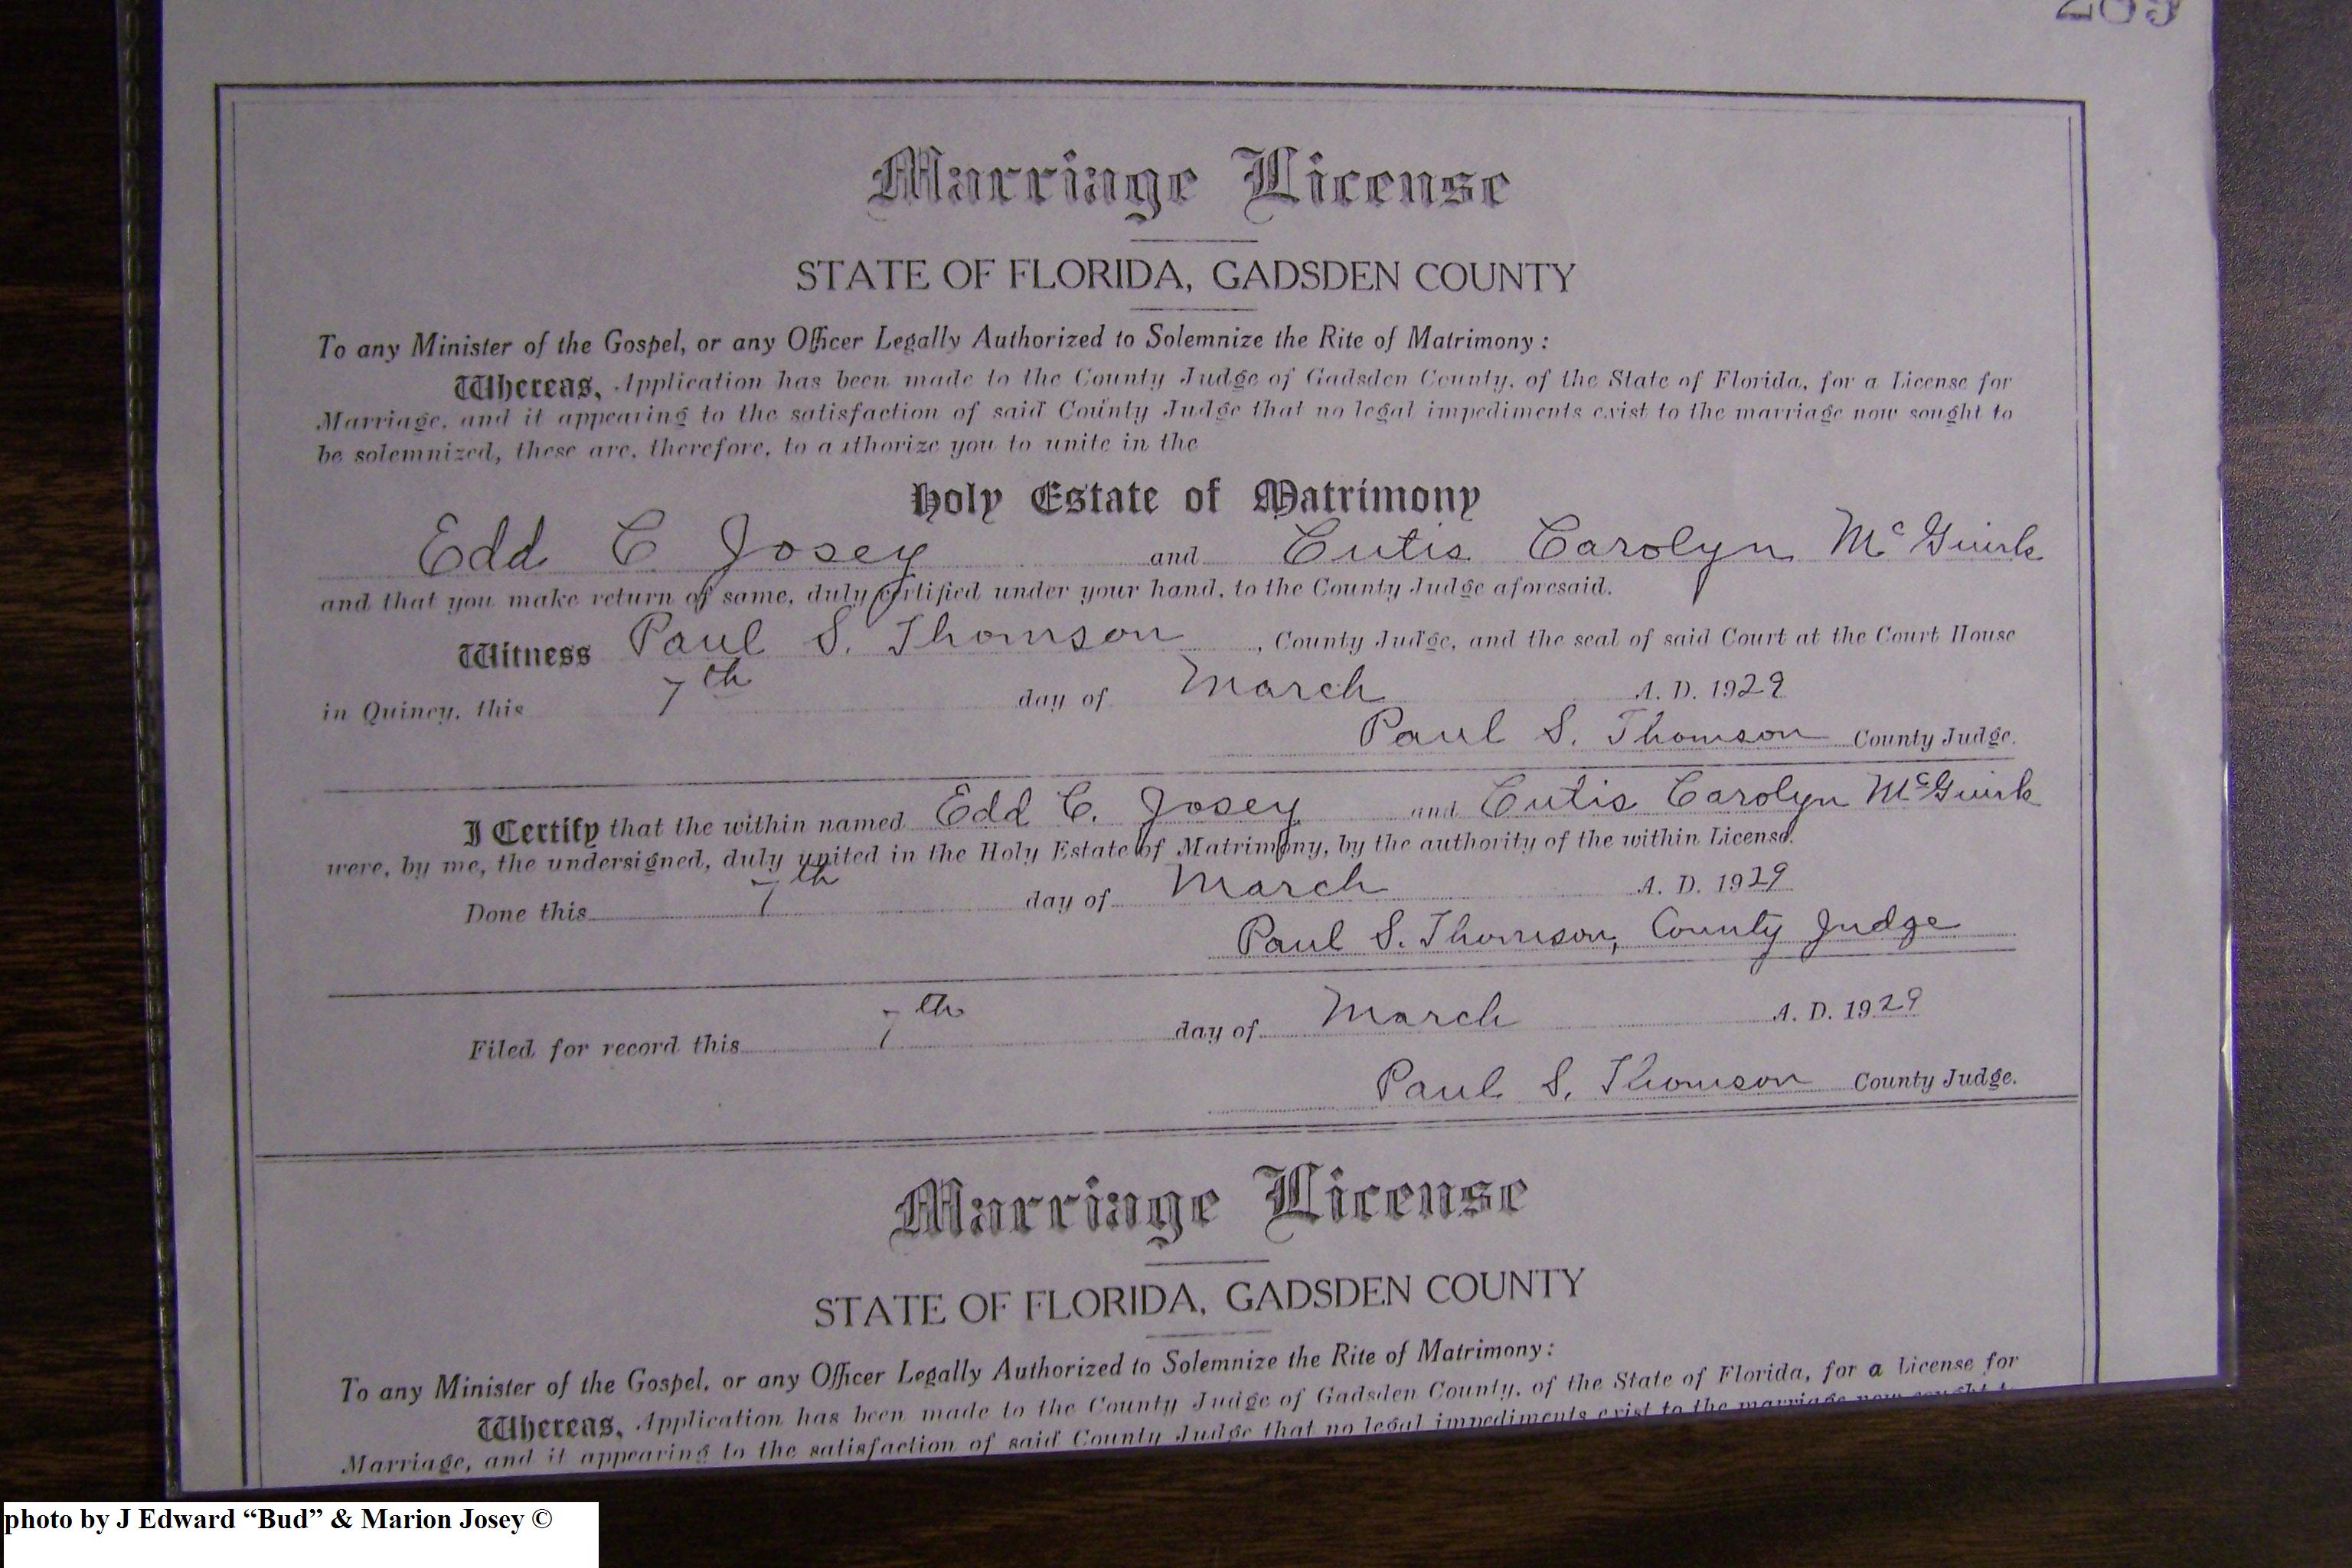 289
Marriage License
STATE OF FLORIDA, GADSDEN COUNTY
To any Minister of the Gospel, or any Officer Legally Authorized to Solemnize the Rite of Matrimony:
Whereas, Application has been made to the County Judge of Gadsden County, of the State of Florida, for a License for
Marriage, and it appearing to the satisfaction of said County Judge that no legal impediments exist to the marriage now sought to
be solemnized, these are, therefore, to authorize you to unite in the
Holy Estate of Matrimony
Edd C. Josey and Cutis Carolyn McGuirk
and that you make return of same, duly certified under your hand, to the County Judge aforesaid.
Witness Paul S. Thomson, County Judge, and the seal of said Court at the Court House
in Quincy, this 7th day of March A. D. 1929
Paul S. Thomson County Judge.
I Certify that the within named Edd C. Josey and Cutis Carolyn McGuirk
were, by me, the undersigned, duly united in the Holy Estate of Matrimony, by the authority of the within License.
Done this 7th day of March A. D. 1929
Paul S. Thomson, County Judge
Filed for record this 7th day of March A. D. 1929
Paul S. Thomson County Judge.
Marriage License
STATE OF FLORIDA, GADSDEN COUNTY
To any Minister of the Gospel, or any Officer Legally Authorized to Solemnize the Rite of Matrimony:
Whereas, Application has been made to the County Judge of Gadsden County, of the State of Florida, for a License for
Marriage, and it appearing to the satisfaction of said County Judge that no legal impediments exist to the marriage now sought t
photo by J Edward “Bud” & Marion Josey ©